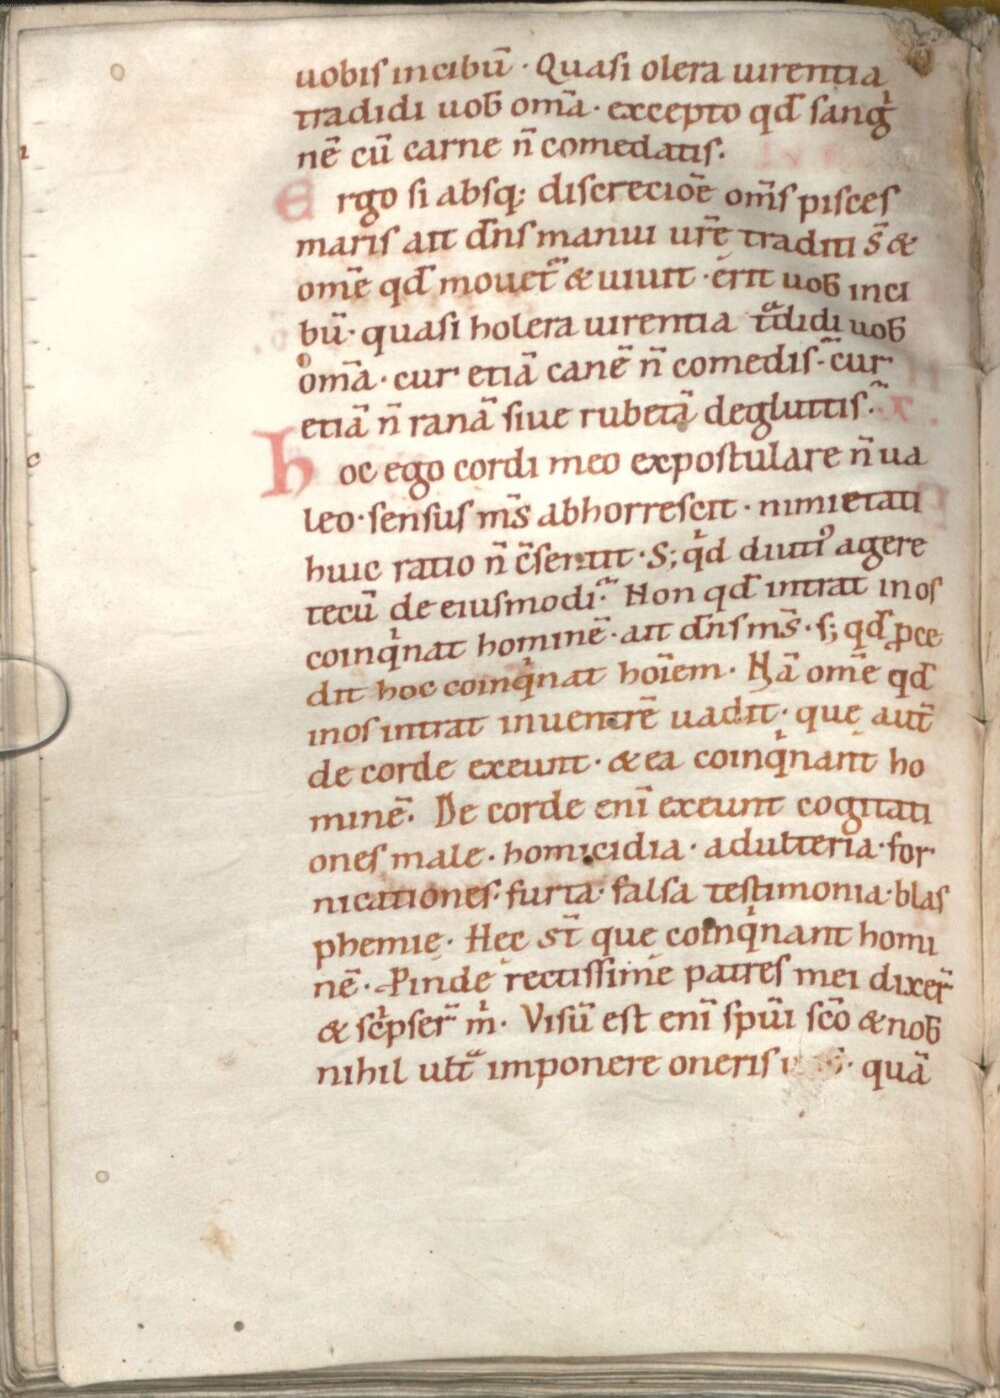 uobis in cibū · Quasi olera uirentia
tradidi uob̄ om̄a · excepto qd̄ sang
nē cū carne n̄ comedatis.
Ergo si absq; discrecioē om̄s pisces
maris ait dn̄s manui ur̄e traditi s̄ &
om̄e qd̄ mouet̄ & uiuit · erit uob̄ in ci
bū · quasi holera uirentia tͣdidi uob̄
om̄a · cur etiā canē n̄ comedis · cur
etiā n̄ ranā siue rubetā degluttis.
hoc ego cordi meo expostulare n̄ ua
leo · sensus m̄s abhorrescit · nimietati
huic ratio n̄ c̄sentit · S; qͥd diuti᾽ agere
tecū de eiusmodi. Non qd̄ intrat in os
coinqͥnat hominē · ait dn̄s m̄s · s; qd̄ ꝓce
dit hoc coinqͥnat hoīem · Nā om̄e qd̄
in os intrat in uentrē uadit · quę aut̄
de corde exeunt · & ea coinqͥnant ho
minē · De corde enī exeunt cogitati
ones male · homicidia · adulteria · for
nicationes · furta · falsa testimonia · blas
phemię · Hec st̄ quę coinqͥnant homi
nē · Pinde rectissime patres mei dixer̄
& scͥpser̄ mͥ · Visū est enī spūi scō & nob̄
nihil ultͣ imponere oneris · quā